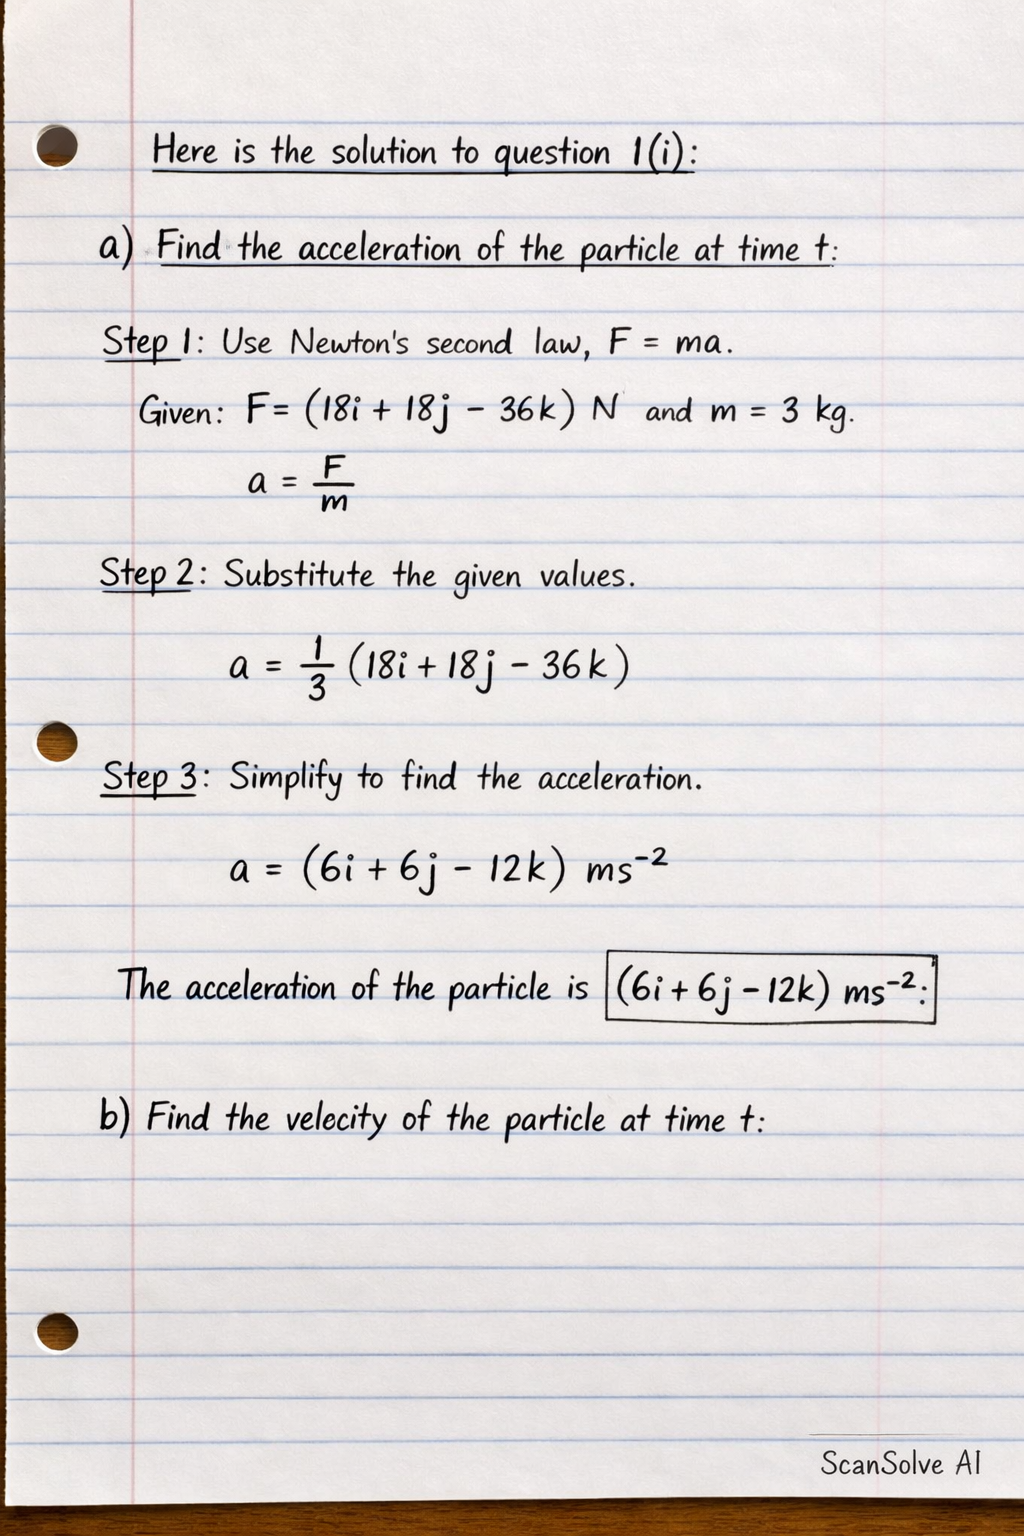 Here is the solution to question 1(i):
a) Find the acceleration of the particle at time t:
Step 1: Use Newton's second law, F = ma.
Given: F= (18i + 18j - 36k) N and m = 3 kg.
a = F/m
Step 2: Substitute the given values.
a = 1/3 (18i + 18j - 36k)
Step 3: Simplify to find the acceleration.
a = (6i + 6j - 12k) ms⁻²
The acceleration of the particle is (6i + 6j - 12k) ms⁻².
b) Find the velecity of the particle at time t:
ScanSolve AI